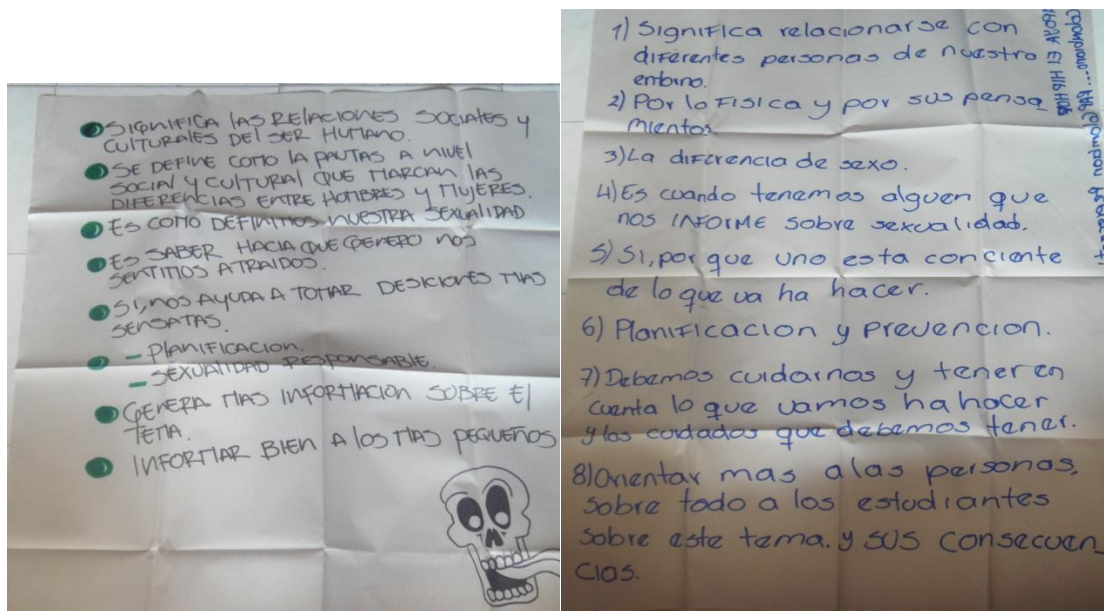 SIGNIFICA LAS RELACIONES SOCIALES Y
CULTURALES DEL SER HUMANO.
SE DEFINE COMO LA PAUTAS A NIVEL
SOCIAL Y CULTURAL QUE MARCAN LAS
DIFERENCIAS ENTRE HOMBRES Y MUJERES.
ES COMO DEFINIMOS NUESTRA SEXUALIDAD
ES SABER HACIA QUE GENERO NOS
SENTIMOS ATRAIDOS.
SI, NOS AYUDA A TOMAR DESICIONES MAS
SENSATAS.
- PLANIFICACION.
- SEXUALIDAD RESPONSABLE.
GENERA MAS INFORMACION SOBRE El
TEMA.
INFORMAR BIEN A LOS MAS PEQUEÑOS
1) Significa relacionarse con
diferentes personas de nuestro
embino.
2) Por lo Fisica y por sus pensa
mientos.
3) La diferencia de sexo.
4) Es cuando tenemos alguen que
nos INFORME sobre sexualidad.
5) Si, por que uno esta conciente
de lo que va ha hacer.
6) Planificacion y prevencion.
7) Debemos cuidarnos y tener en
cuenta lo que vamos ha hacer
y los cuidados que debemos tener.
8) Orientar mas a las personas,
sobre todo a los estudiantes
sobre este tema. y sus consecuen
cias.